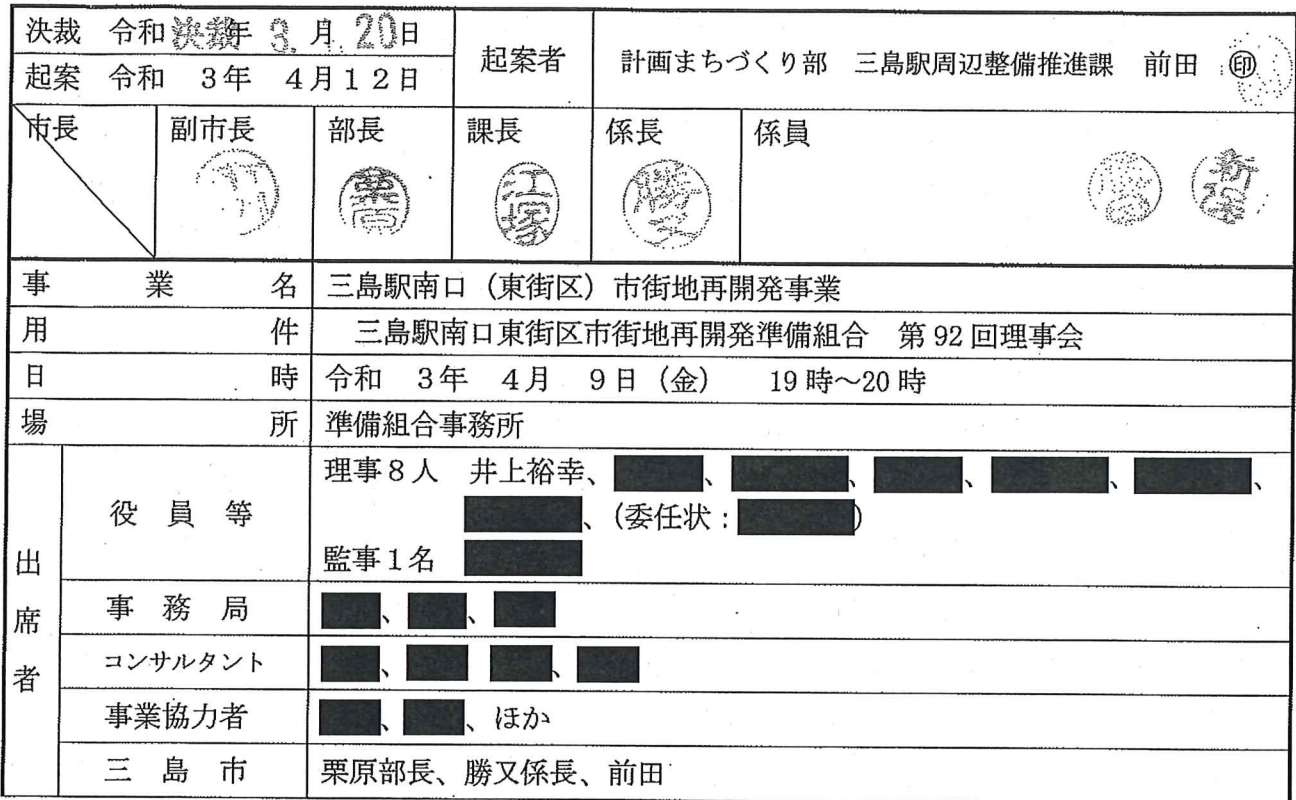 決裁 令和 年 3. 月 20日
起案 令和 3年 4月12日
起案者
計画まちづくり部 三島駅周辺整備推進課 前田 ㊞
市長
副市長
部長
課長
係長
係員
栗原
江塚
勝又
新塚
事業名
三島駅南口(東街区)市街地再開発事業
用件
三島駅南口東街区市街地再開発準備組合 第92回理事会
日時
令和 3年 4月 9日(金) 19時~20時
場所
準備組合事務所
出席者
役員等
理事8人 井上裕幸、、、、、、
、(委任状:)
監事1名
事務局
、、
コンサルタント
、、
事業協力者
、、ほか
三島市
栗原部長、勝又係長、前田